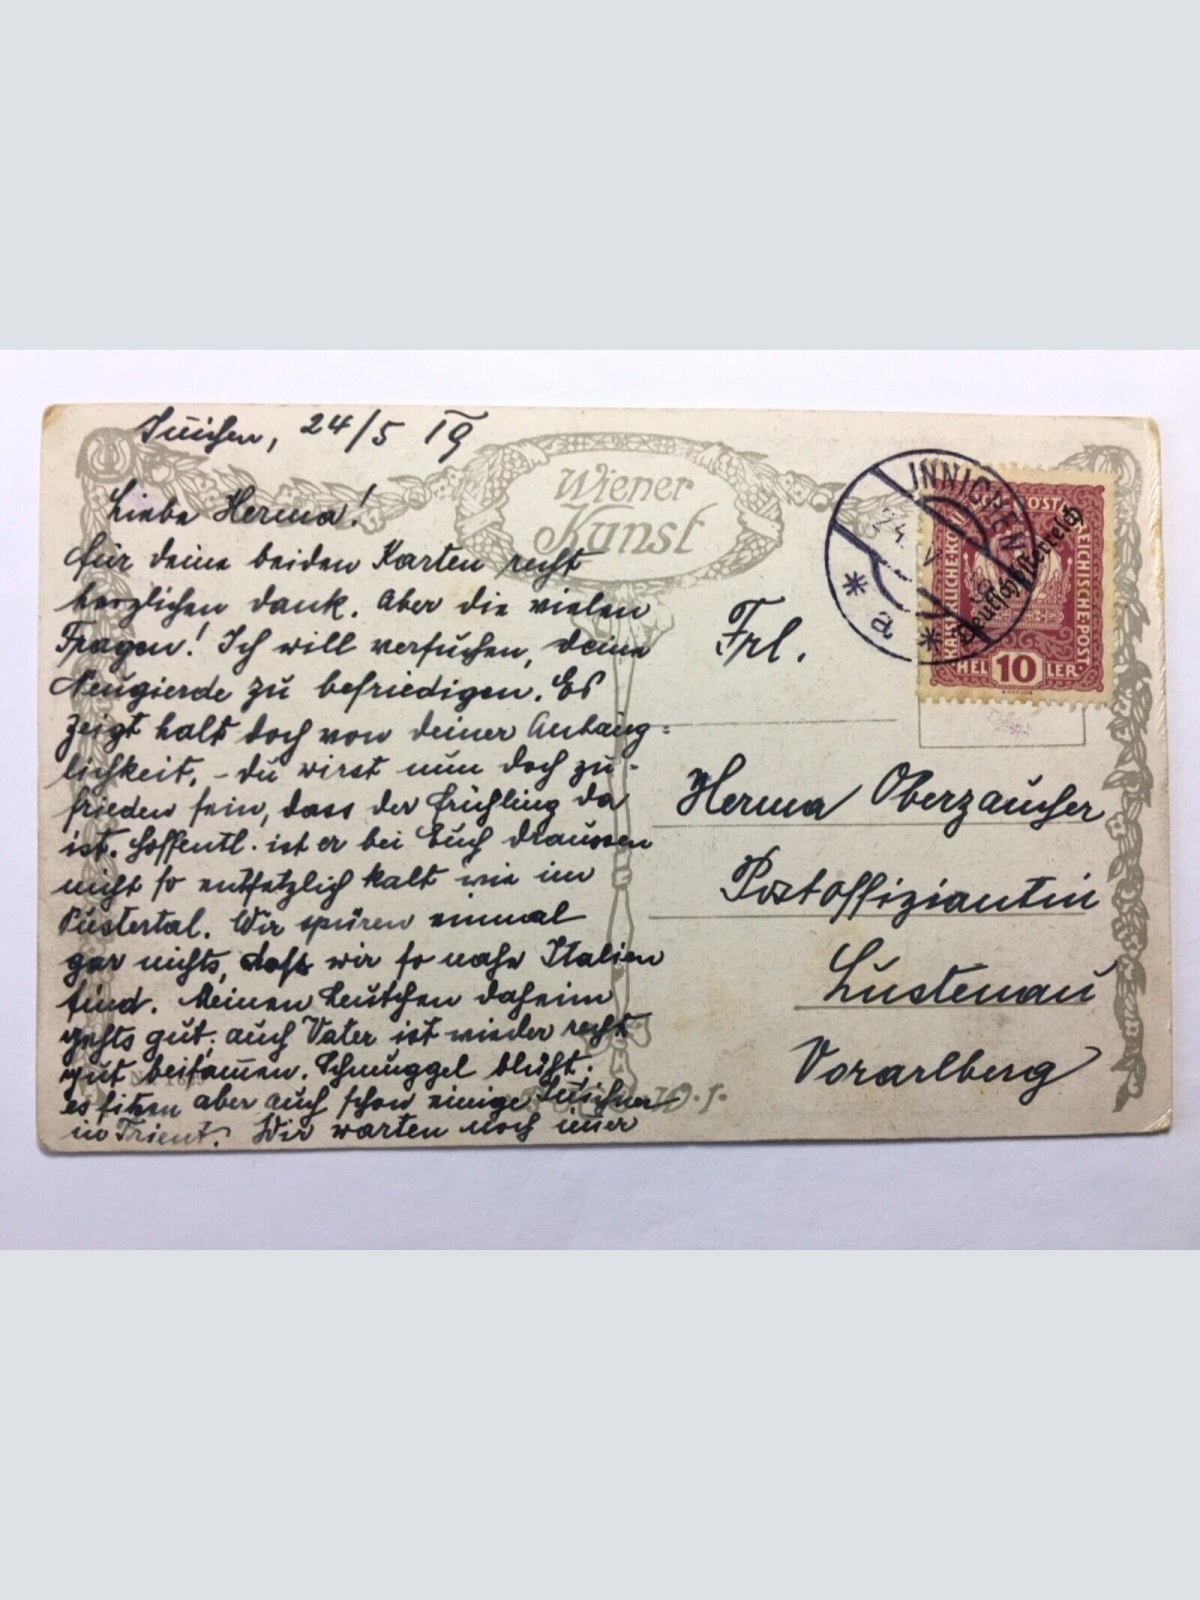 Innichen, 24/5 19
Wiener
Kunst
Liebe Herma!
für deine beiden Karten recht
herzlichen dank. Aber die vielen
Fragen! Ich will versuchen, deine
Neugierde zu befriedigen. Es
zeigt halt doch von deiner Anhäng=
lichkeit, - du wirst nun doch zu-
frieden sein, dass der Frühling da
ist. Hoffentl. ist er bei Euch draussen
nicht so entsetzlich kalt wie im
Pustertal. Wir spüren einmal
gar nichts, dass wir so nahe Italien
sind. Meinen Leutchen daheim
gehts gut; auch Vater ist wieder recht
gut beisam̅en. Schmuggel blüht;
es sitzen aber auch schon einige Innichner
in Trient. Wir warten noch im̅er
Frl.
Herma Oberzaucher
Postoffiziantin
Lustenau
Vorarlberg
INNICHEN
24. V.
* a *
KAISERLICHE KÖNIGLICHE ÖSTERREICHISCHE POST
Deutschösterreich
HEL 10 LER